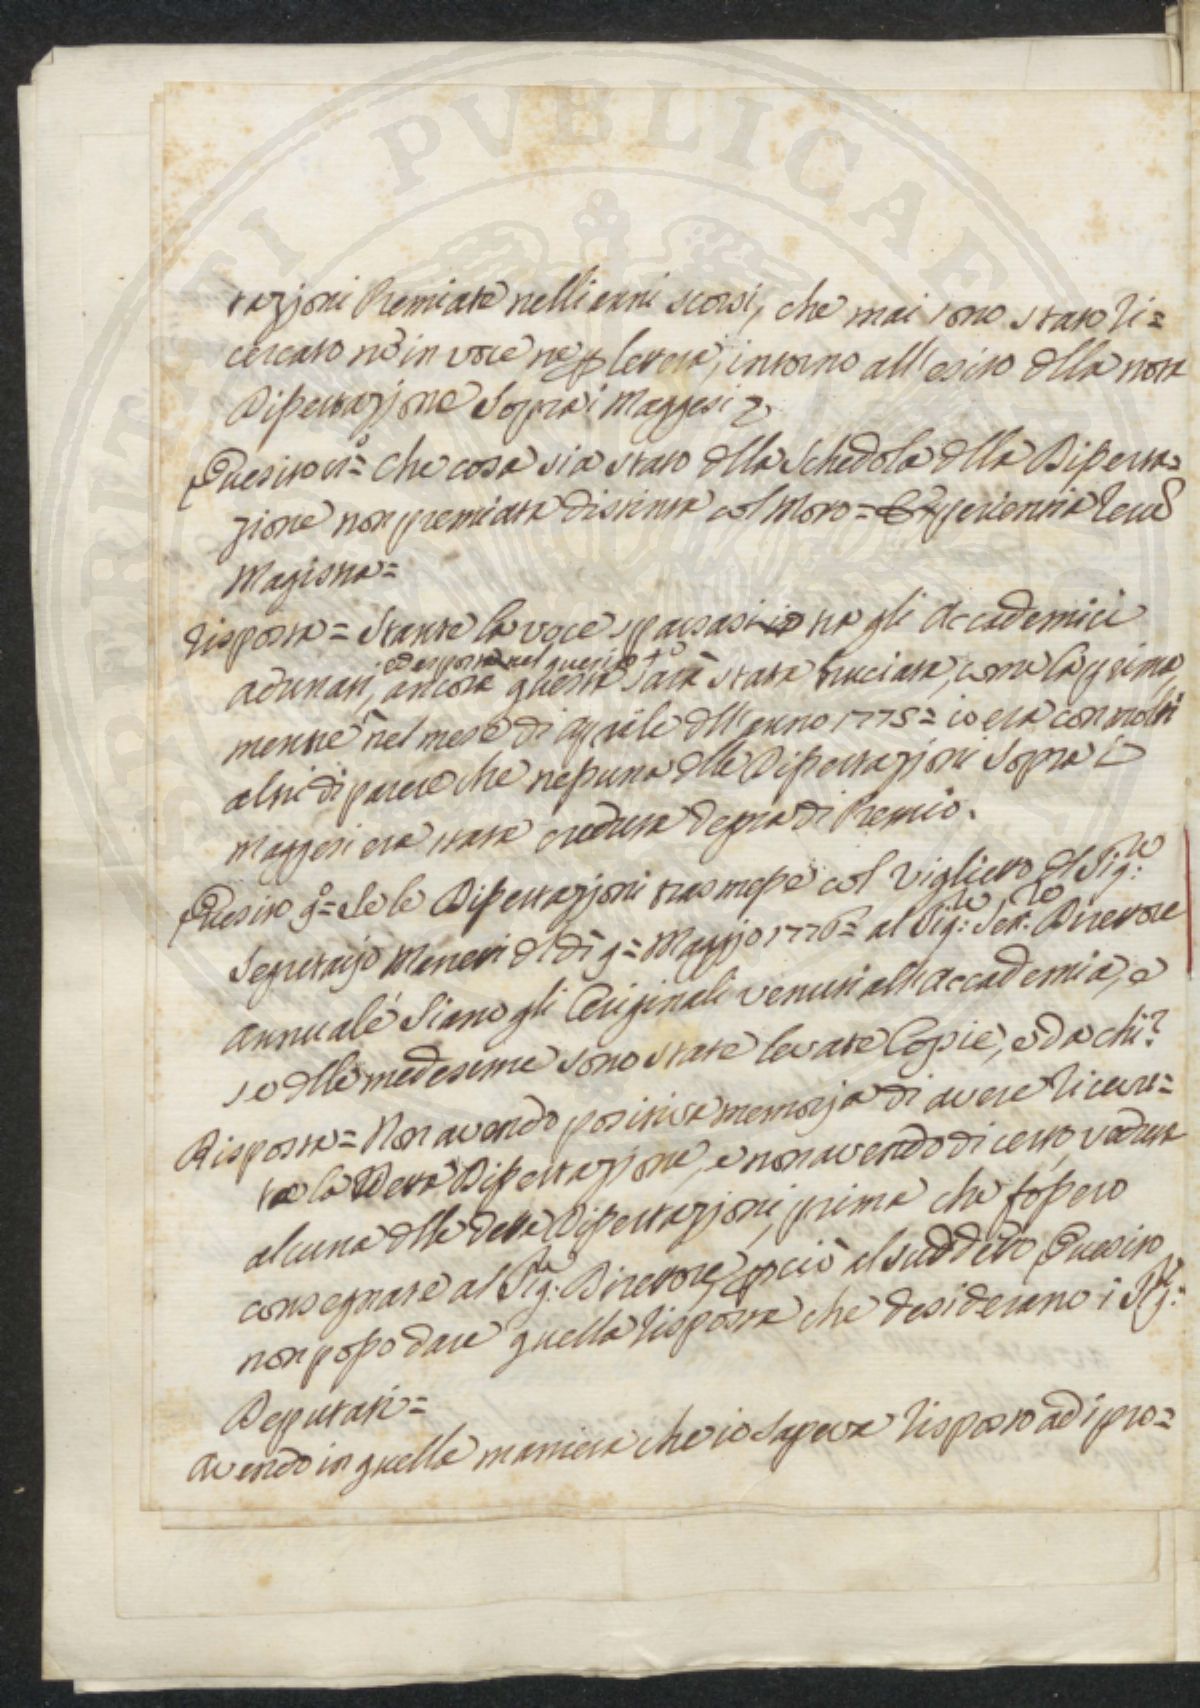 PROSPERITATI PVBLICAE AV
tazjoni Premiate nelli anni scorsi, che mai sono stato ri=
cercato nè in voce nè p lettera, intorno all'esito dlla nota
Dissertazjone Sopra i Maggesi
Quesito 8º= Che cosa sia stato dlla Schedola dlla Disserta=
zione non premiata distinta col Moto= Experientia Rerum
Magistra=
Risposta= Stante la voce sparsasi tra gli Accademici
ed esposta nel quesito 4º
adunati, ancora questa sarà stata bruciata, come la prima,
mentre nel mese di Aprile dll'anno 1775= io era con molti
altri di parere che nessuna dlle Dissertazjoni Sopra i
Maggesi era stata creduta degna di Premio.
Quesito 9º= Se le Dissertazjoni trasmesse col Viglietto dl Sig:re
Segretario Maneri dl dì 9= Maggio 1776= al Sig:re Seg:rio Direttore
Annuale Siano gli Originali venuti all'Accademia, e
se dlle medesime sono state levate Copie, e da chi?
Risposta= Non avendo positiva memorja di avere ricevu=
ta la detta Dissertazjone, e non avendo di certo veduta
alcuna dlle dette Dissertazjoni, prima che fossero
consegnate al Sig:re Direttore, p ciò al suddetto Quesito
non posso dare quella risposta che desiderano i Sig:ri
Deputati=
Avendo in quella maniera che io Sapeva risposto ad i pro=